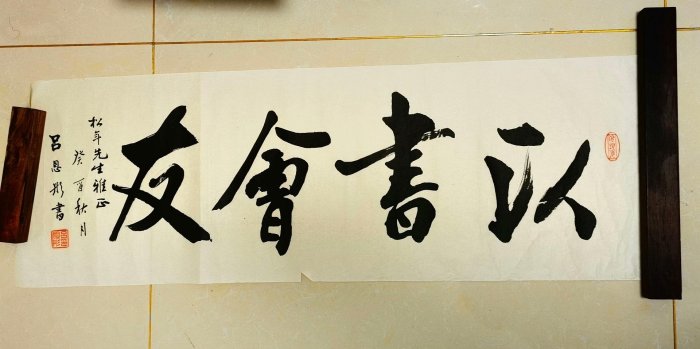 以書會友
松年先生雅正
癸酉秋月
呂恩彤書